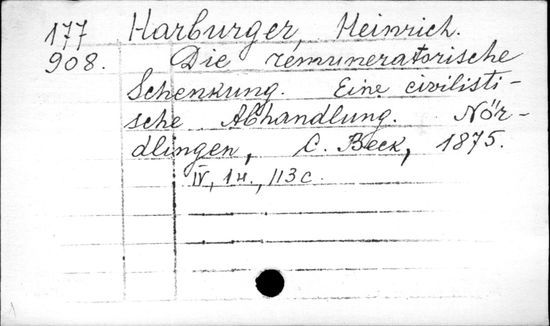 177 Harburger, Heinrich.
908. Die remuneratorische
Schenkung. Eine civilisti-
sche Abhandlung. Nör-
dlingen, C. Beck, 1875.
IV, 1н., 113 с.